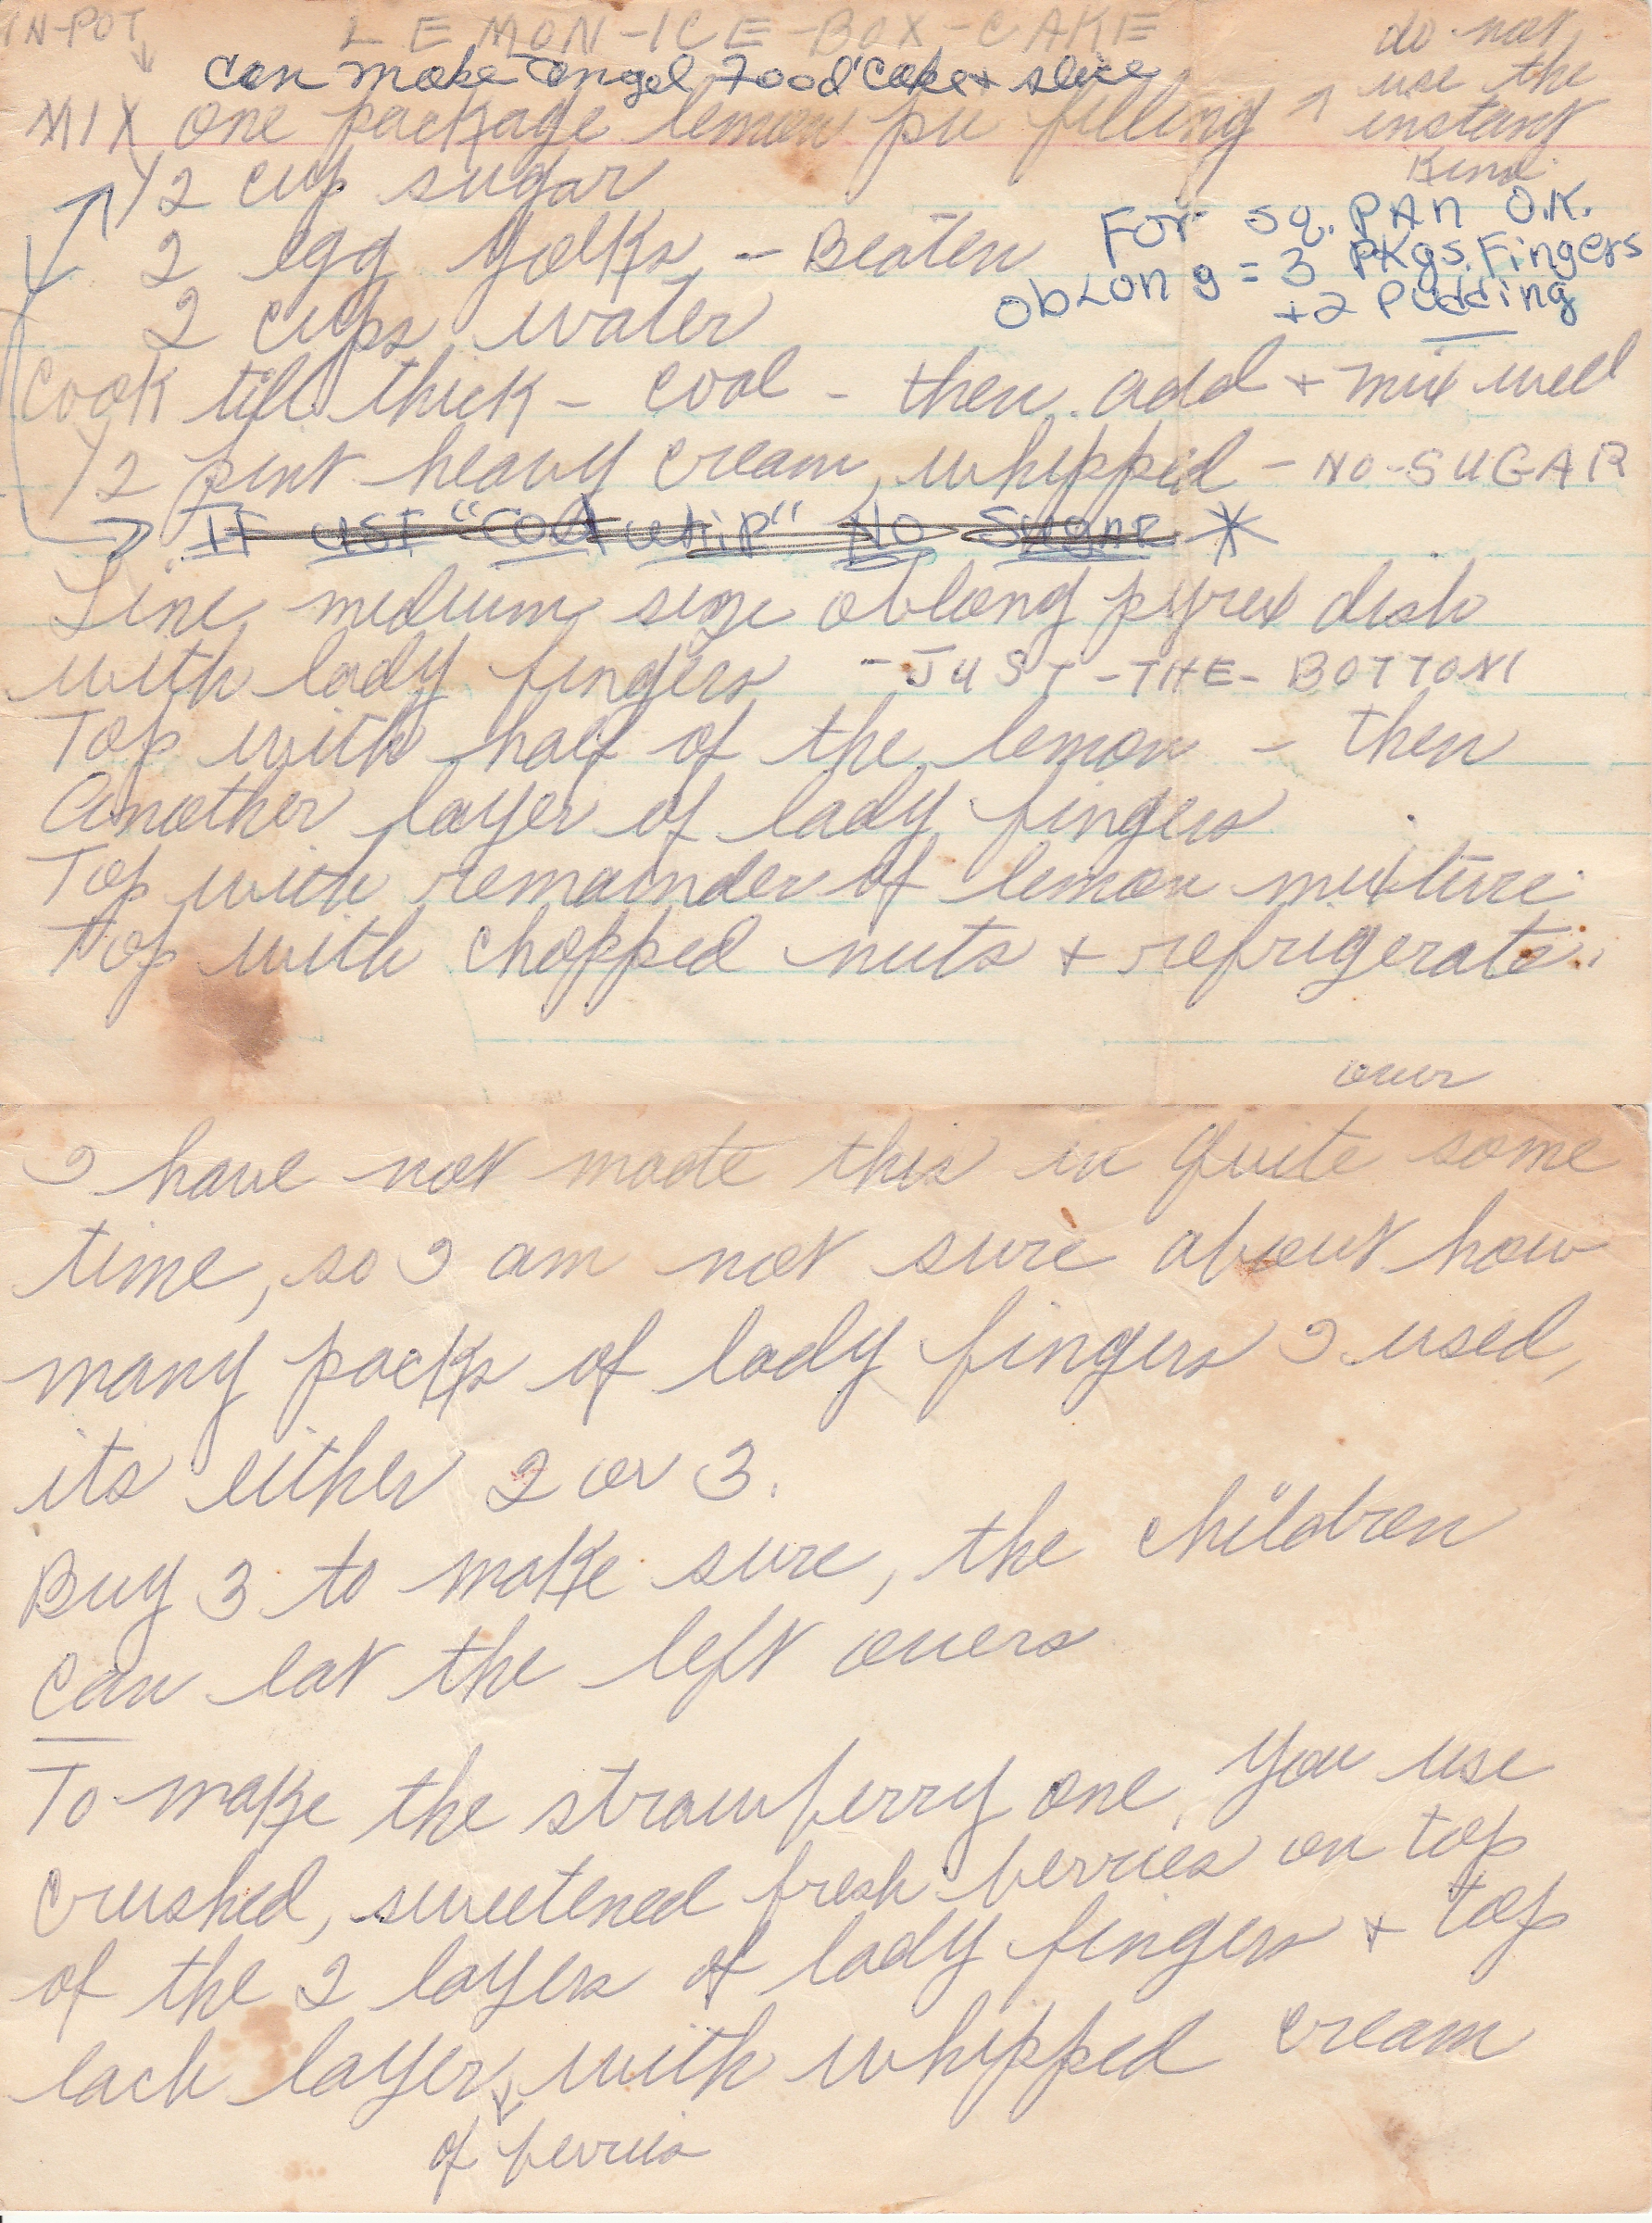 IN-POT
LEMON-ICE-BOX-CAKE
do not
use the
instant
kind
can make angel food cake + slice
MIX one package lemon pie filling
1/2 cup sugar
2 egg yolks - Beaten
2 cups water
For sq. PAN O.K.
obLong = 3 PKgs. Fingers
+2 Pudding
Cook till thick - cool - then add + mix well
1/2 pint heavy cream, whipped - NO-SUGAR
IF USE "Cool whip" No Sugar *
Line medium size oblong pyrex dish
with lady fingers - JUST-THE-BOTTOM
Top with half of the lemon - then
Another layer of lady fingers
Top with remainder of lemon mixture
Top with chopped nuts + refrigerate.
over
I have not made this in quite some
time, so I am not sure about how
many packs of lady fingers I used,
its either 2 or 3.
Buy 3 to make sure, the children
can eat the left overs
To make the strawberry one, you use
crushed, sweetened fresh berries on top
of the 2 layers of lady fingers + top
each layer with whipped cream
of berries